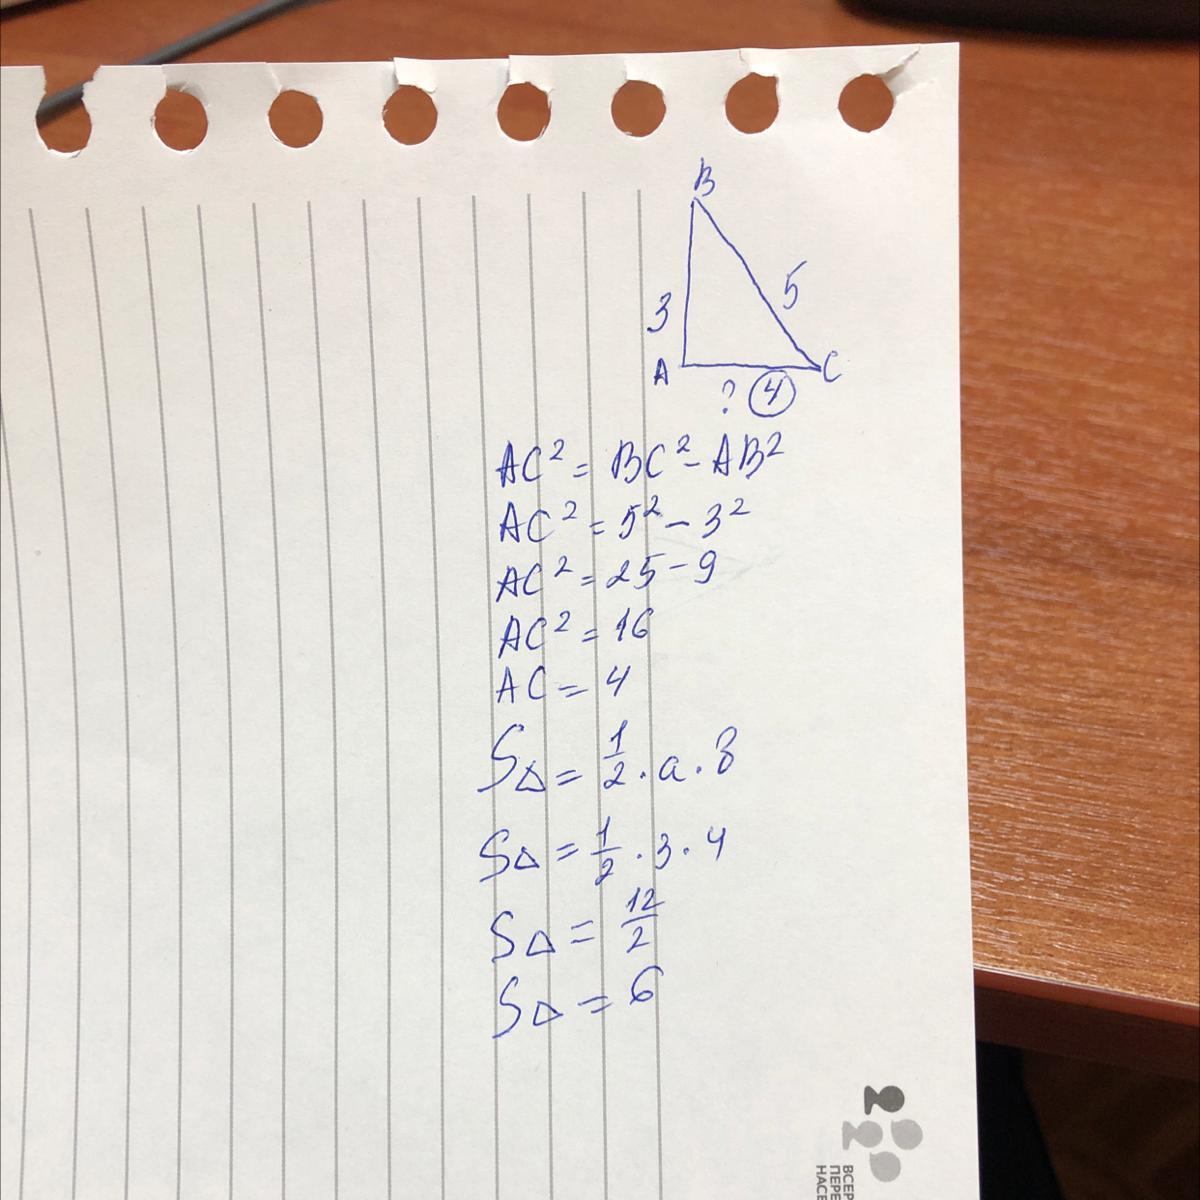 B
3
5
A
C
? 4
AC² = BC² - AB²
AC² = 5² - 3²
AC² = 25 - 9
AC² = 16
AC = 4
S△ = 1/2 · a · в
S△ = 1/2 · 3 · 4
S△ = 12/2
S△ = 6
ВСЕР
ПЕРЕ
НАСЕ